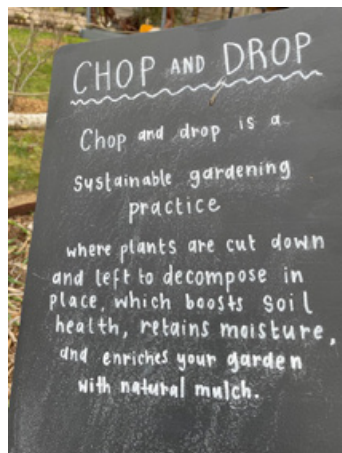 CHOP AND DROP
Chop and drop is a
sustainable gardening
practice
where plants are cut down
and left to decompose in
place, which boosts soil
health, retains moisture,
and enriches your garden
with natural mulch.